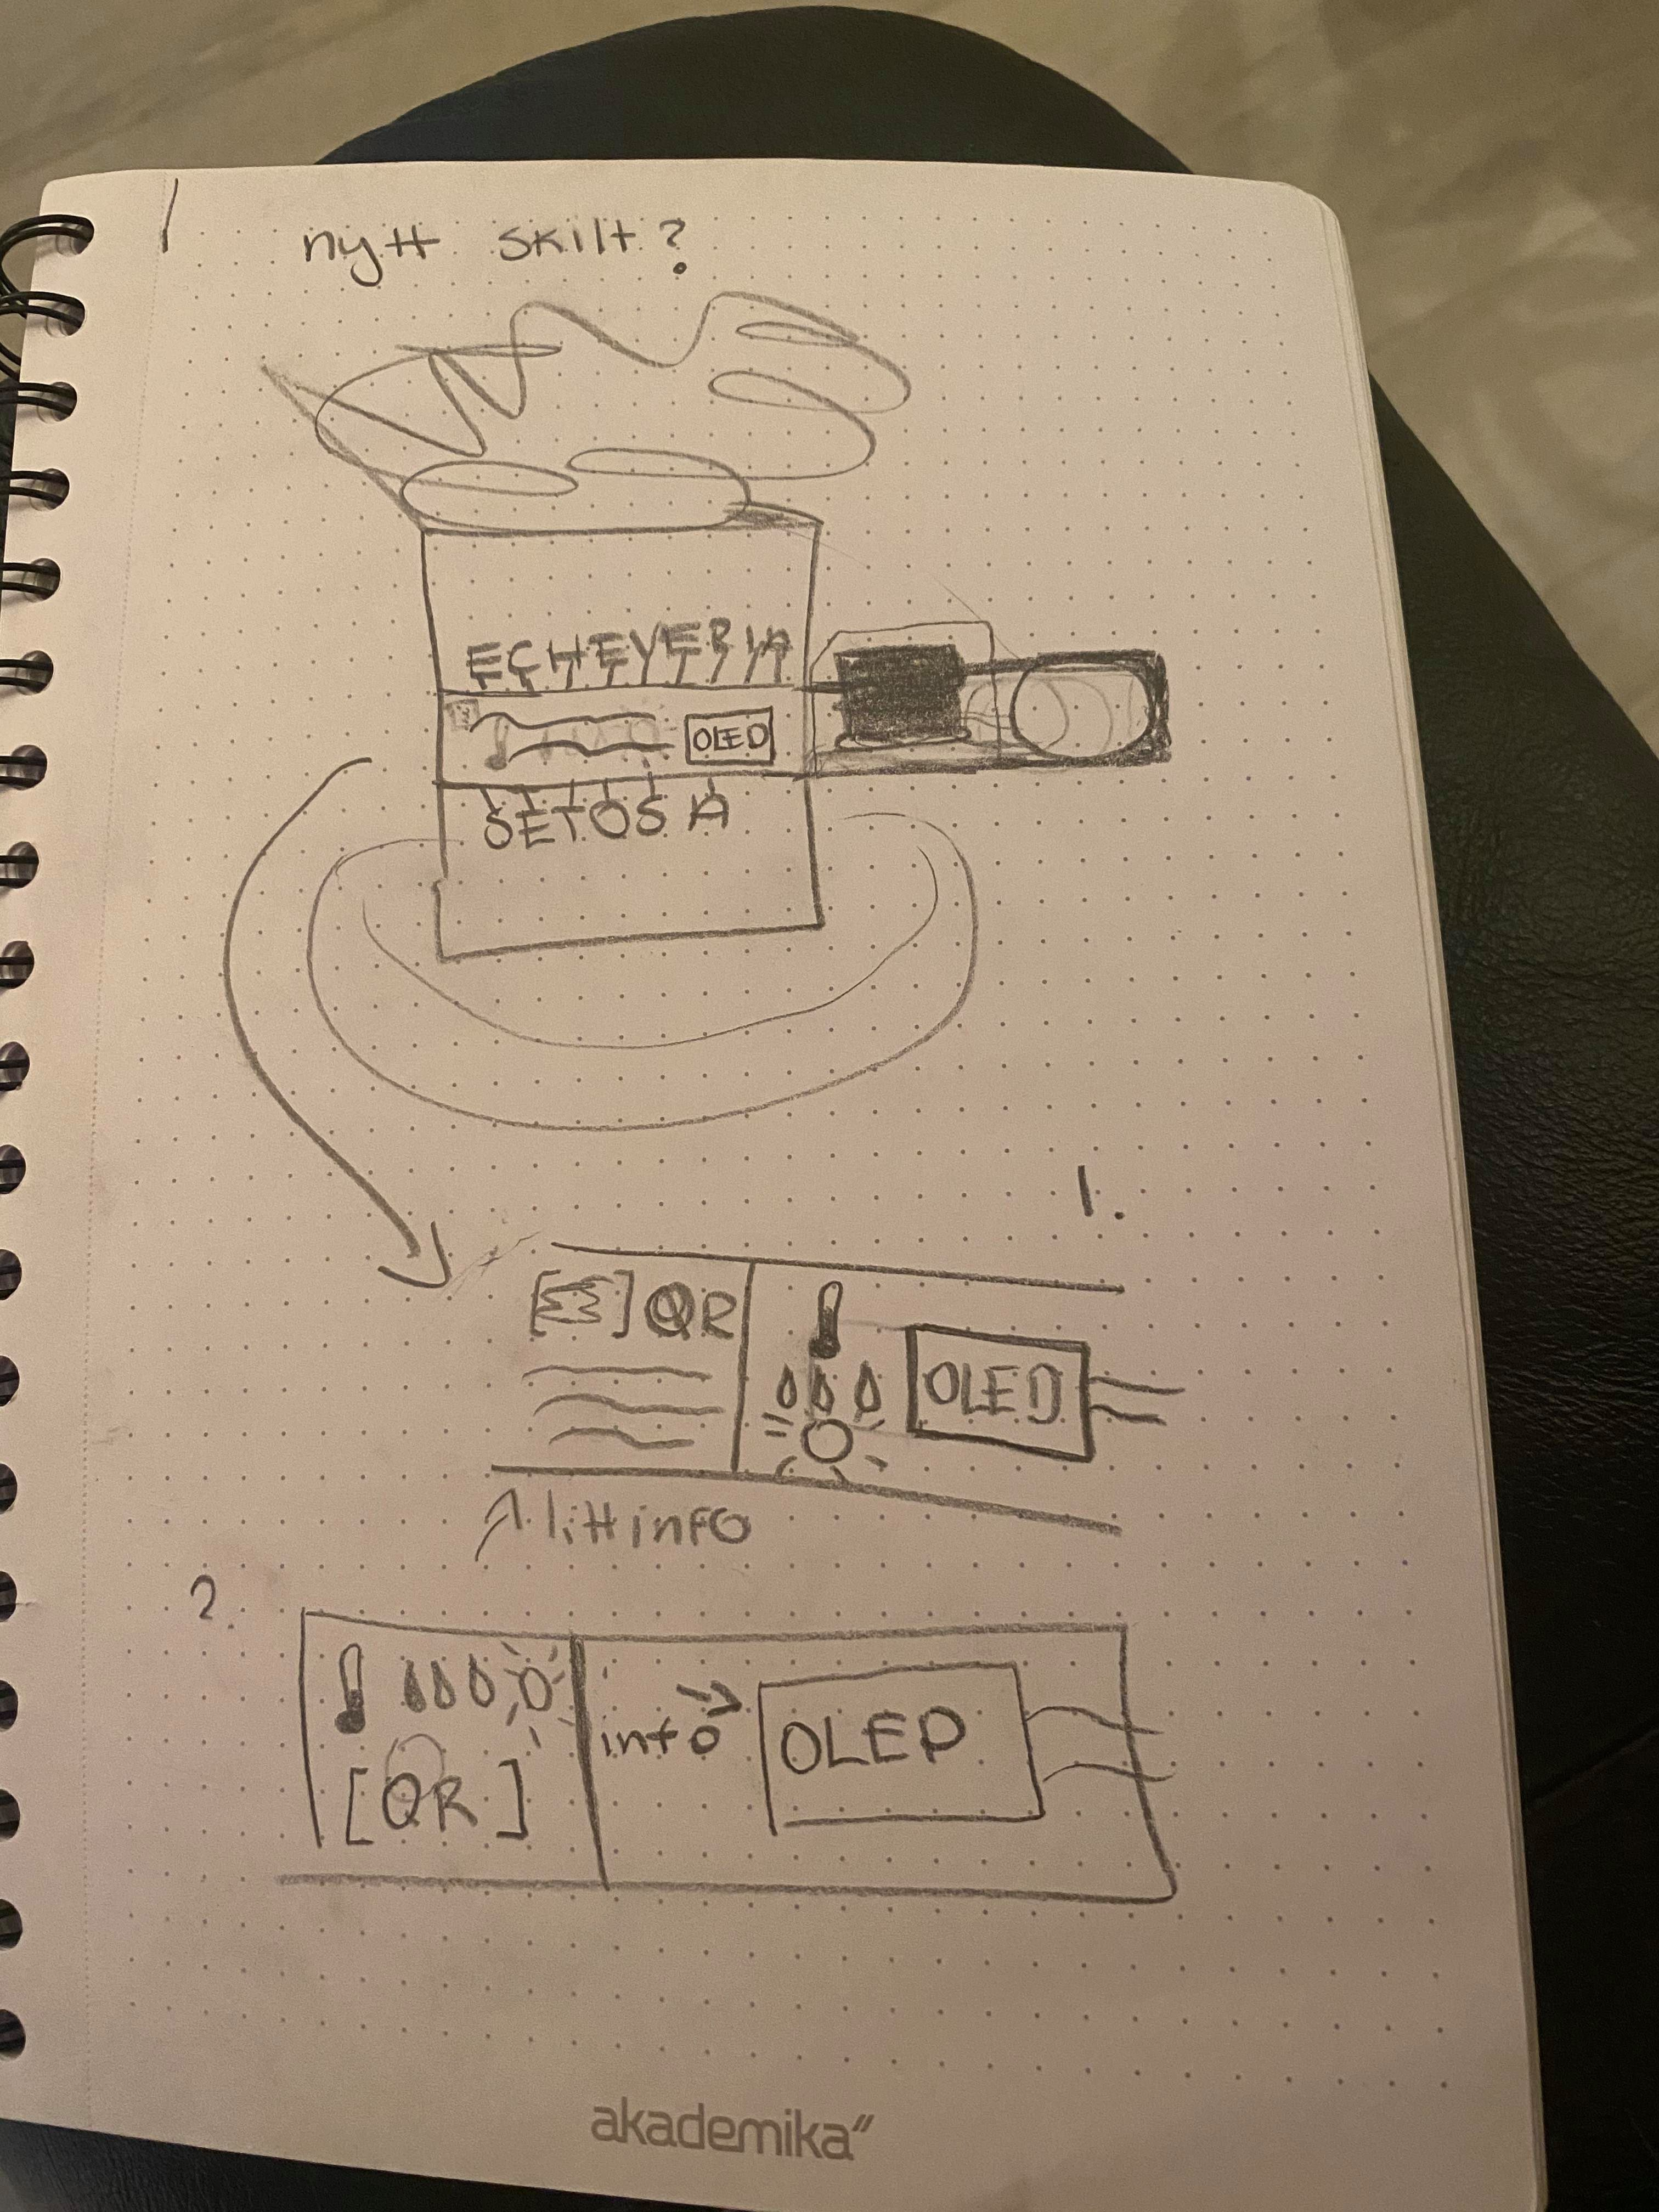 nytt skilt?
ECHEVERIA
OLED
SETOSA
1.
QR
OLED
litt info
2.
info
OLED
[QR]
akademika